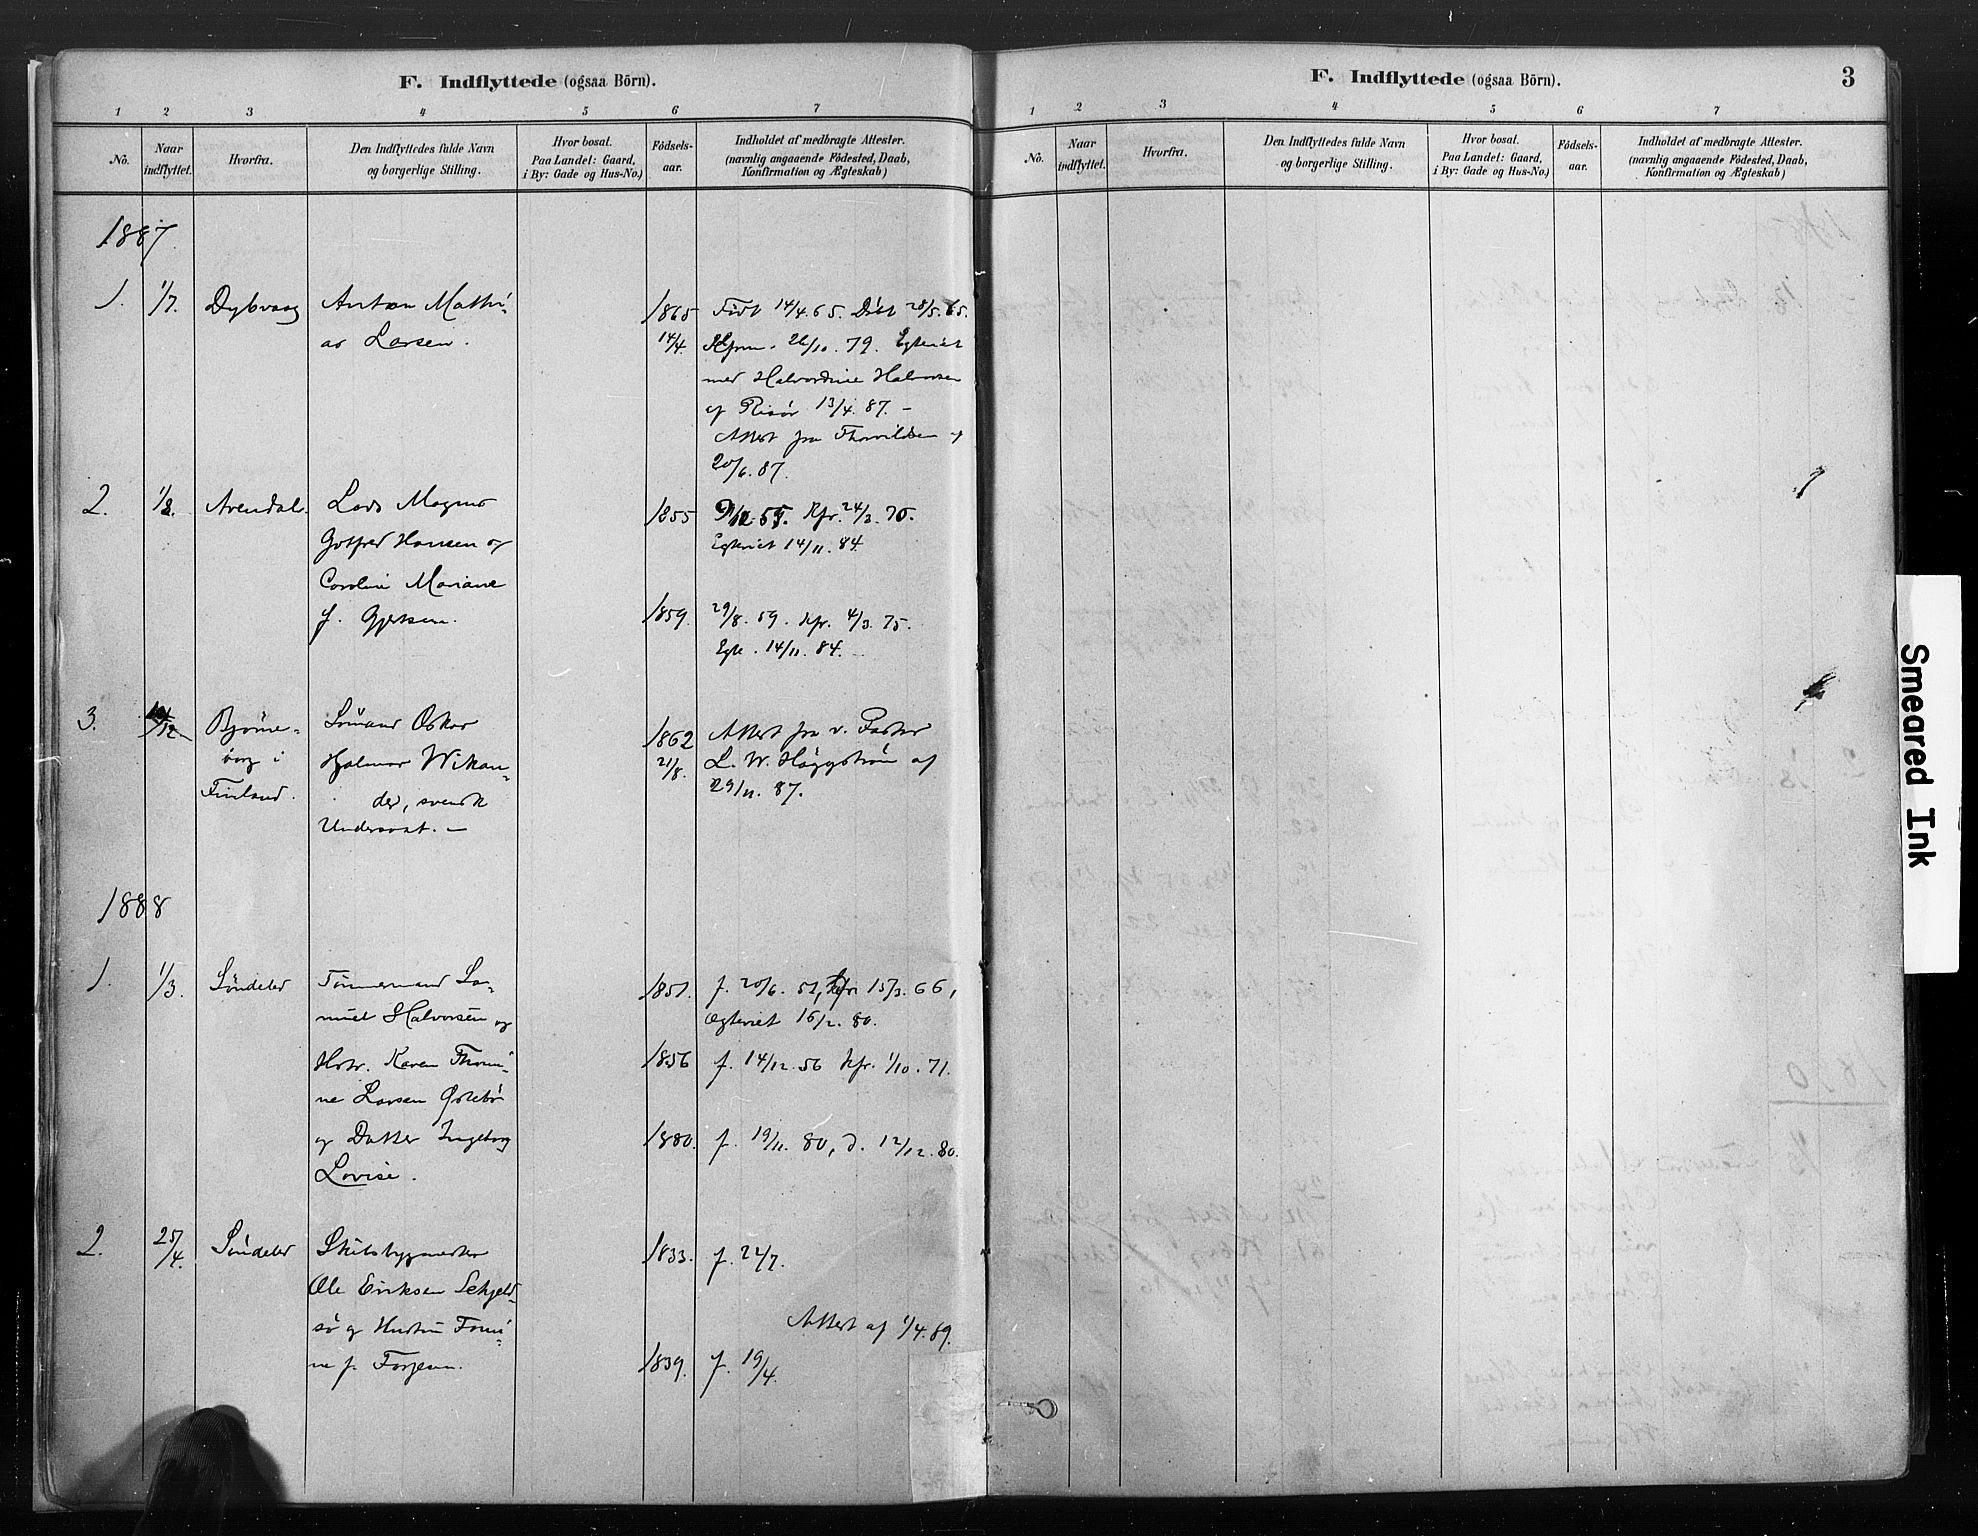 F. Indflyttede (ogsaa Börn).
1 2 3 4 5 6 7
No.
Naar indflyttet.
Hvorfra.
Den Indflyttedes fulde Navn og borgerlige Stilling.
Hvor bosat. Paa Landet: Gaard, i By: Gade og Hus-No.)
Födsels-aar.
Indholdet af medbragte Attester. (navnlig angaaende Födested, Daab, Konfirmation og Ægteskab)
1887
1. 1/7. Dybvaag Anton Matthi- 1865 Födt 14/4.65. Döbt 28/5.65.
as Larsen. 14/4. Kfrm. 26/10.79. Egteviet
med Halvordine Halvorsen
af Risör 13/4.87. –
Attest fra
20/6.87.
2. 1/8. Arendal. Lars Magnus 1855 Kfr. 24/3.70.
Gotfred Hansen og Egteviet 14/11.84.
Caroline Mariane
f. Gjertsen. 1859. 29/8.59. Kfr. 4/3.75.
Egte. 14/11.84. –
3. Björne- Sömand Oskar 1862 Attest fra v. Pastor
borg i Hjalmar Wikan- 21/8. L. W. Häggström af
Finland. der, svensk 29/11.87.
Undersaat. –
1888
1. 1/3. Söndeled Tömmermand Sa- 1851. f. 20/6.51, Kfr. 15/3.66,
muel Halvorsen og Egteviet 16/2.80.
Hstr. Karen Thomi- 1856 f. 14/12.56 Kfr. 1/10.71.
ne Larsen
og Datter Ingeborg 1880. f. 19/11.80, d. 12/12.80.
Lovise.
2. 25/4. Söndeled Skibsbygmester 1833. f. 22/7.
Ole Eriksen Sekjeld-
sö og Hustru Tomi- Attest af 1/4.89.
ne f. Torjesen. 1839. f. 19/4.
F. Indflyttede (ogsaa Börn). 3
1 2 3 4 5 6 7
No.
Naar indflyttet.
Hvorfra.
Den Indflyttedes fulde Navn og borgerlige Stilling.
Hvor bosat. Paa Landet: Gaard, i By: Gade og Hus-No.)
Födsels-aar.
Indholdet af medbragte Attester. (navnlig angaaende Födested, Daab, Konfirmation og Ægteskab)
Smeared Ink